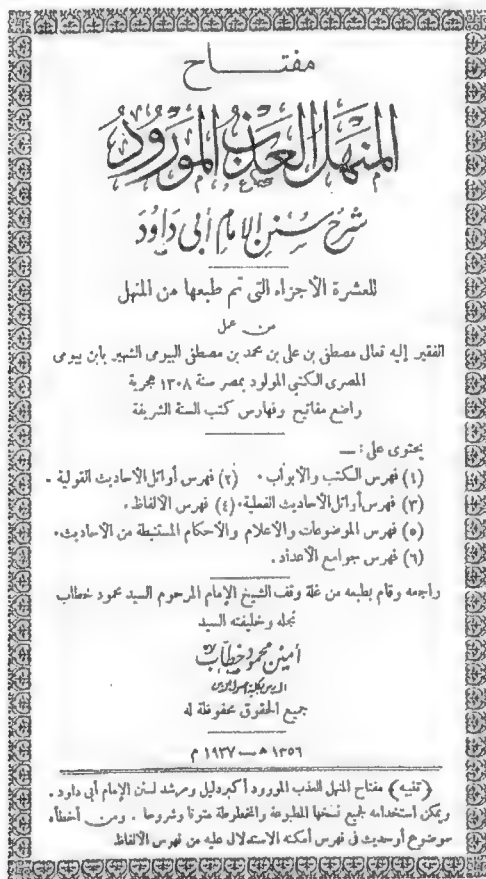 مفتاح
المنهل العذب المورود
شرح سنن الإمام أبي داود
للعشرة الأجزاء التى تم طبعها من المنهل
من عمل
الفقير إليه تعالى مصطفى بن على بن محمد بن مصطفى البيومى الشهير بابن بيومى
المصرى الكتبي المولود بمصر سنة ١٣٠٨ هجرية
واضع مفاتيح وفهارس كتب السنة الشريفة
يحتوى على : —
(١) فهرس الكتب والأبواب . (٢) فهرس أوائل الأحاديث القولية .
(٣) فهرس أوائل الأحاديث الفعلية . (٤) فهرس الألفاظ .
(٥) فهرس الموضوعات والأعلام والأحكام المستنبطة من الأحاديث .
(٦) فهرس جوامع الأعداد .
راجعه وقام بطبعه من غلة وقف الشيخ الإمام المرحوم السيد محمود خطاب
نجله وخليفته السيد
أمين محمود خطاب
المدرس بكلية أصول الدين
جميع الحقوق محفوظة له
١٣٥٦ ه — ١٩٣٧ م
(تنبيه) مفتاح المنهل العذب المورود أكبر دليل ومرشد لسنن الإمام أبى داود .
ويمكن استخدامه لجميع نسخها المطبوعة والمخطوطة متونا وشروحا . ومن أخطأه
موضوع أوحديث فى فهرس أمكنه الاستدلال عليه من فهرس الألفاظ